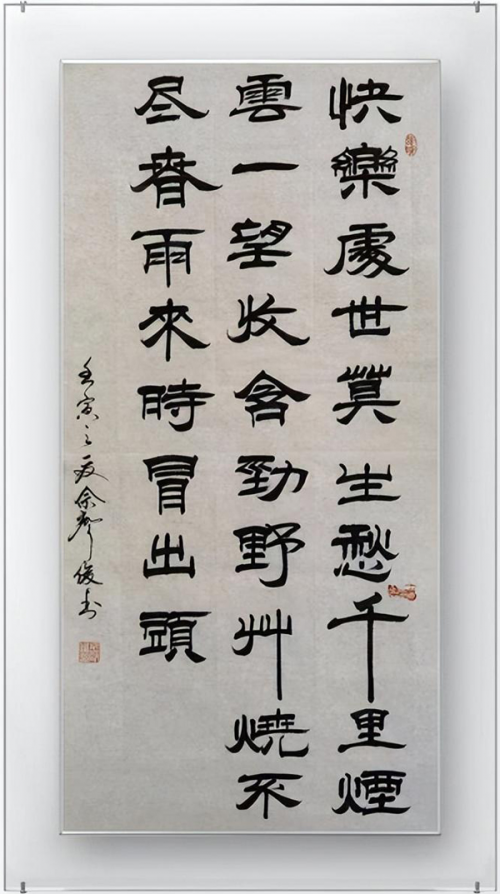 快樂處世莫生愁千里煙
雲一望收含勁野艸燒不
尽春雨來時冒出頭
壬寅之夏俊书